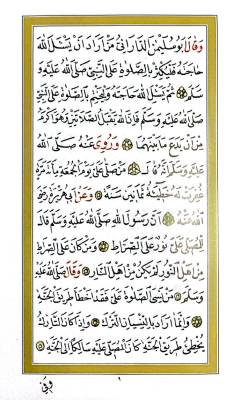 وَقَالَ أَبُو سُلَيْمٰنَ الدَّارَانِيُّ مَنْ أَرَادَ أَنْ يَسْئَلَ اللّٰهَ
حَاجَتَهُ فَلْيُكْثِرْ بِالصَّلٰوةِ عَلَى النَّبِيِّ صَلَّى اللّٰهُ عَلَيْهِ وَ
سَلَّمَ ثُمَّ يَسْئَلُ اللّٰهَ حَاجَتَهُ وَلْيَخْتِمْ بِالصَّلٰوةِ عَلَى النَّبِيِّ
صَلَّى اللّٰهُ عَلَيْهِ وَسَلَّمَ فَإِنَّ اللّٰهَ يَقْبَلُ الصَّلٰوتَيْنِ وَهُوَ أَكْرَمُ
مِنْ أَنْ يَدَعَ مَا بَيْنَهُمَا وَرُوِيَ عَنْهُ صَلَّى اللّٰهُ
عَلَيْهِ وَسَلَّمَ أَنَّهُ قَالَ مَنْ صَلَّى عَلَيَّ يَوْمَ الْجُمُعَةِ مِائَةَ مَرَّةٍ
غُفِرَتْ لَهُ خَطِيئَةُ ثَمَانِينَ سَنَةً وَعَنْ أَبِي هُرَيْرَةَ رَضِيَ
اللّٰهُ عَنْهُ أَنَّ رَسُولَ اللّٰهِ صَلَّى اللّٰهُ عَلَيْهِ وَسَلَّمَ قَالَ
لِلْمُصَلِّي عَلَيَّ نُورٌ عَلَى الصِّرَاطِ وَمَنْ كَانَ عَلَى الصِّرَاطِ
مِنْ أَهْلِ النُّورِ لَمْ يَكُنْ مِنْ أَهْلِ النَّارِ وَقَالَ صَلَّى اللّٰهُ عَلَيْهِ
وَسَلَّمَ مَنْ نَسِيَ الصَّلٰوةَ عَلَيَّ فَقَدْ أَخْطَأَ طَرِيقَ الْجَنَّةِ
وَإِنَّمَا أَرَادَ بِالنِّسْيَانِ التَّرْكَ وَإِذَا كَانَ التَّارِكُ
يُخْطِئُ طَرِيقَ الْجَنَّةِ كَانَ الْمُصَلِّي عَلَيْهِ سَالِكًا إِلَى الْجَنَّةِ
٩